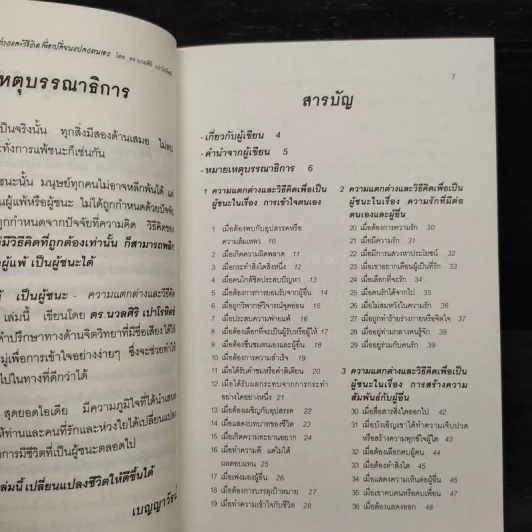 หตุบรรณาธิการ
เป็นจริงนั้น ทุกสิ่งมีสองด้านเสมอ
ะทั่งการแพ้ชนะก็เช่นกัน
ชนะนั้น มนุษย์ทุกคนไม่อาจหลีกพ้นได้
ผู้แพ้หรือผู้ชนะ ไม่ได้ถูกกำหนดด้วยปัจจัย
ถูกกำหนดจากปัจจัยที่ความคิด วิธีคิดของ
มีวิธีคิดที่ถูกต้องเท่านั้น ก็สามารถพลิก
ผู้แพ้ เป็นผู้ชนะได้
เป็นผู้ชนะ - ความแตกต่างและวิธีคิด
เล่มนี้ เขียนโดย ดร.นวลศิริ เปาโรหิตย์
คำปรึกษาทางด้านจิตวิทยาที่มีชื่อเสียง ได้ให้
มู่เพื่อการเข้าใจอย่างง่ายๆ ซึ่งจะช่วยทำให้
ไปในทางที่ดีกว่าได้
สุดยอดไอเดีย มีความภูมิใจที่ได้นำเสนอ
ให้ท่านและคนที่รักและห่วงใยได้เปลี่ยนแปลง
การมีชีวิตที่เป็นผู้ชนะตลอดไป
เล่มนี้ เปลี่ยนแปลงชีวิตให้ดีขึ้นได้
7
สารบัญ
- เกี่ยวกับผู้เขียน 4
- คำนำจากผู้เขียน 5
- หมายเหตุบรรณาธิการ 6
1 ความแตกต่างและวิธีคิดเพื่อเป็น
ผู้ชนะในเรื่อง การเข้าใจตนเอง
1 เมื่อต้องพบกับอุปสรรคหรือ
ความล้มเหลว 10
2 เมื่อเกิดความผิดพลาด 11
3 เมื่อกระทำสิ่งใดสิ่งหนึ่ง 12
4 เมื่อคนใกล้ชิดประสบปัญหา 13
5 เมื่อต้องการการยอมรับจากผู้อื่น 14
6 เมื่อถูกวิพากษ์วิจารณ์จุดอ่อน 15
7 เมื่อประสบความพ่ายแพ้ 16
8 เมื่อต้องเลือกที่จะเป็นผู้รับหรือผู้ให้ 17
9 เมื่อต้องชื่นชมตนเองและผู้อื่น 18
10 เมื่อต้องการความสำเร็จ 19
11 เมื่อได้รับคำชมหรือคำติเตียน 20
12 เมื่อได้รับผลกระทบจากการกระทำ
อย่างใดอย่างหนึ่ง 21
13 เมื่อต้องเผชิญกับอุปสรรค 22
14 เมื่อแสดงบทบาทของชีวิต 23
15 เมื่อเกิดความทะยานอยาก 24
16 เมื่อทำความดี แต่ไม่ได้
ผลตอบแทน 25
17 เมื่อเพ่งมองผู้อื่น 26
18 เมื่อต้องการบรรลุเป้าหมาย 27
19 เมื่อทำความเข้าใจกับชีวิต 28
2 ความแตกต่างและวิธีคิดเพื่อเป็น
ผู้ชนะในเรื่อง ความรักที่มีต่อ
ตนเองและผู้อื่น
20 เมื่อต้องการความรัก 30
21 เมื่อมีความรัก 31
22 เมื่อมีการแสวงหาประโยชน์ 32
23 เมื่อเขาอยากเตือนผู้เป็นที่รัก 33
24 เมื่อเลือกที่จะรัก 34
25 เมื่อคนรักได้จากไป 35
26 เมื่อไม่สมหวังในความรัก 36
27 เมื่อถูกทำร้ายร่างกายหรือจิตใจ 37
28 เมื่ออยู่ท่ามกลางคนรู้จัก 38
29 เมื่ออยู่ร่วมกับคนรัก 39
3 ความแตกต่างและวิธีคิดเพื่อเป็น
ผู้ชนะในเรื่อง การสร้างความ
สัมพันธ์กับผู้อื่น
30 เมื่อสื่อสารสิ่งใดออกไป 42
31 เมื่อบังเอิญเขาได้ทำความเจ็บปวด
หรือสร้างความทุกข์ใจผู้ใด 43
32 เมื่อต้องเลือกคบผู้คน 44
33 เมื่อต้องทำสิ่งใด 45
34 เมื่อแสดงความเห็นต่อผู้อื่น 46
35 เมื่อเขาคบคนหรือคบเพื่อน 47
36 เมื่อต้องแสดงออก 48